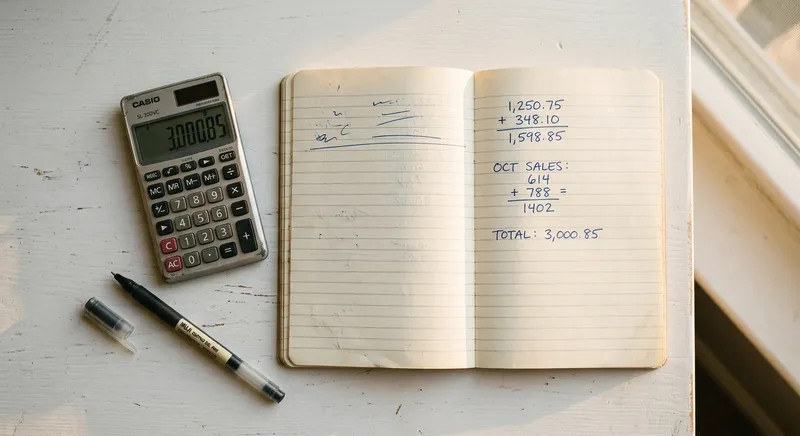 CASIO
SL-300VC
3,000.85
MC
MR
M-
M+
÷
7
8
9
×
4
5
6
−
C
1
2
3
+
AC
0
.
=
1,250.75
+ 348.10
1,598.85
OCT SALES:
614
+ 788 =
1402
TOTAL: 3,000.85